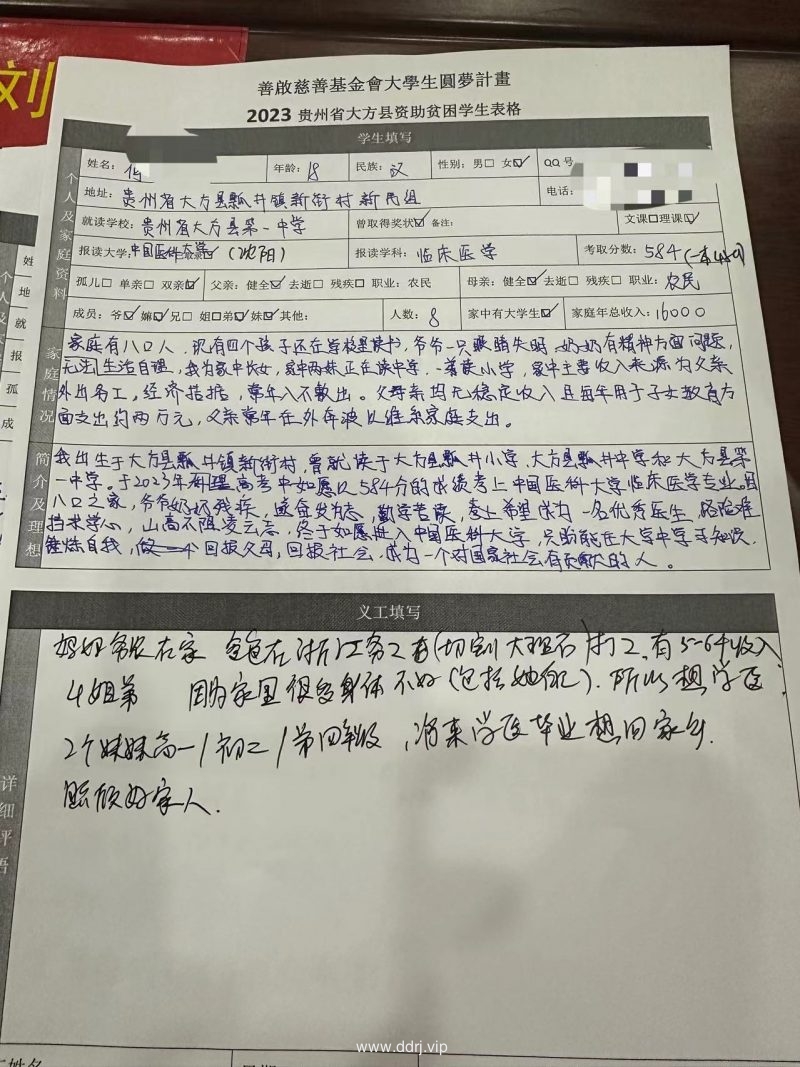 刘
善啟慈善基金會大學生圓夢計畫
2023 贵州省大方县资助贫困学生表格
学生填写
个人及家庭资料
姓名: 年龄: 18 民族: 汉 性别: 男□ 女☑ QQ 号
地址: 贵州省大方县瓢井镇新街村新民组 电话:
就读学校: 贵州省大方县第一中学 曾取得奖状☑ 备注: 文课□理课☑
报读大学: 中国医科大学 (沈阳) 报读学科: 临床医学 考取分数: 584
孤儿□ 单亲□ 双亲☑ 父亲: 健全☑ 去逝□ 残疾□ 职业: 农民 母亲: 健全☑ 去逝□ 残疾□ 职业: 农民
成员: 爷☑ 嫲☑ 兄□ 姐□ 弟☑ 妹☑ 其他: 人数: 8 家中有大学生☑ 家庭年总收入: 16000
家庭情况
家庭有八口人,现有四个孩子还在学校里读书,爷爷一只眼睛失明,奶奶有精神方面问题,
无法生活自理,我为家中长女,家中两妹正在读中学,一弟读小学,家中主要收入来源为父亲
外出务工,经济拮据,常年入不敷出。父母亲均无稳定收入且每年用于子女教育方
面支出约两万元,父亲常年在外奔波以维系家庭支出。
简介及理想
我出生于大方县瓢井镇新街村,曾就读于大方县瓢井小学,大方县瓢井中学和大方县第
一中学。于2023年 高考中如愿以584分的成绩考上中国医科大学临床医学专业。自
八口之家,爷爷奶奶残疾,遂奋发为志,勤学苦读,考上希望成为一名优秀医生,路险难
挡求学心,山高不阻凌云志,终于如愿进入中国医科大学,只盼能在大学中学习知识,
锤炼自我, 回报父母,回报社会,成为一个对国家社会有贡献的人。
义工填写
详细评语
奶奶爷爷在家 爸爸在浙江务工 (切割大理石) 打工,有5-6千收入
4姐弟 因为家里很多身体不好(包括她自己).所以想学医
2个妹妹高一/初二/弟四年级,将来学医毕业想回家乡.
照顾好家人.
姓
地
就
报
孤
成
www.ddrj.vip